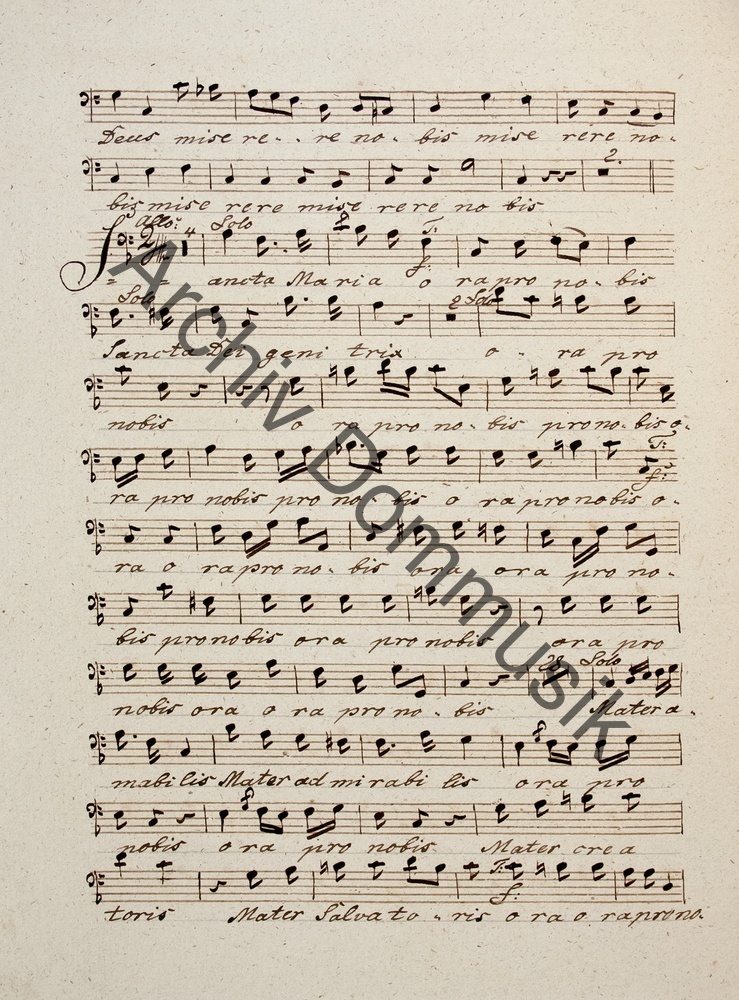 Deus mise re - . re no - bis mise rere no -
2.
bis mise rere mise rere no bis
Allo: Solo
2/4 4 T:
f:
Sancta Maria o ra pro no - bis
Solo 2 Solo
Sancta Dei geni trix o - ra pro
nobis o ra pro no - bis pro no - bis o -
T:
f:
ra pro nobis pro no - bis o ra pro nobis o -
ra o ra pro no - bis ora ora pro no -
bis pro nobis ora pro nobis ora pro
28 Solo
nobis ora o ra pro no - bis Mater a -
mabilis Mater admirabi lis ora pro
nobis ora pro nobis Mater crea
T:
f:
toris Mater Salvato - ris o ra o ra pro no -
Archiv Dommusik